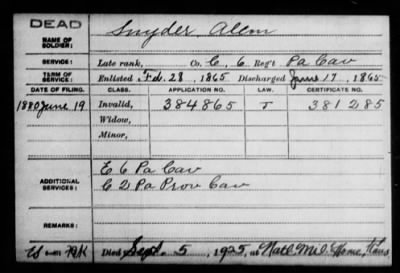 DEAD
NAME OF SOLDIER: Snyder, Allen
SERVICE: Late rank, Co. E, 6 Reg't Pa Cav
TERM OF SERVICE: Enlisted Feb. 28, 1865 Discharged June 17, 1865
DATE OF FILING. CLASS. APPLICATION NO. LAW. CERTIFICATE NO.
1880 June 19 Invalid, 384865 J 381285
Widow,
Minor,
ADDITIONAL SERVICES: E 6 Pa Cav
C 2 Pa Prov Cav
REMARKS:
Died Sept. 5, 1925, at Natl. Mil. Home, Kans